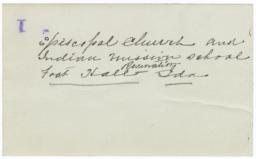 I
Episcopal Church and
Indian mission school
Reservation
Fort Hall Ida